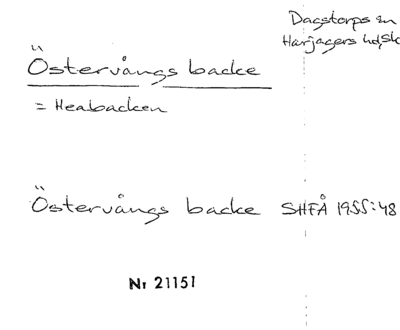 Dagstorps sn
Harjagers hd, Sk
Östervångs backe
= Heabacken
Östervångs backe SHFÅ 1955:48
Nr 21151